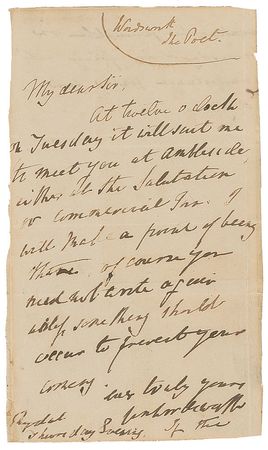 Wordsworth
the Poet.
My dear Sir,
At twelve o clock
on Tuesday it will suit me
to meet you at Ambleside,
either at the Salutation
or Commercial Inn. I
will make a point of being
there. Of course you
need not write again
unless something should
occur to prevent your
coming.
ever truly yours
Wm Wordsworth
Rydal
Thursday Evening. If the